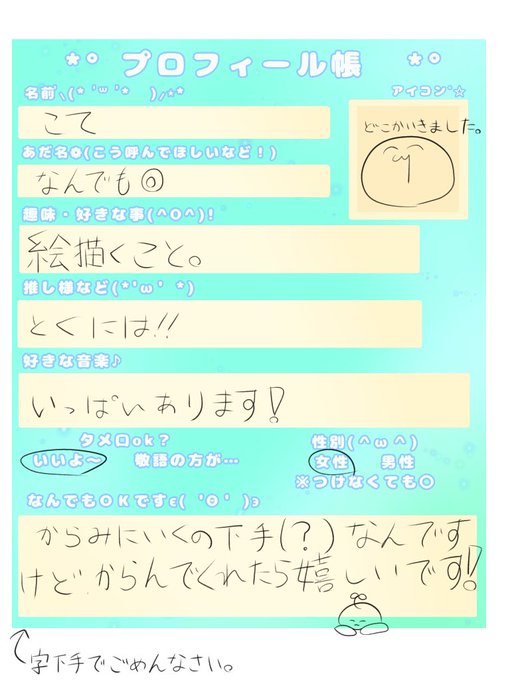 *° プロフィール帳 *°
名前\(*'ω'* )/☆*
アイコン*☆
こて
どこかいきました。
あだ名✿(こう呼んでほしいなど！)
なんでも◎
趣味・好きな事(^O^)!
絵描くこと。
推し様など(*'ω' *)
とくには!!
好きな音楽♪
いっぱいあります!
タメ口ok？
性別(^ω^)
いいよ〜 敬語の方が…
女性 男性
※つけなくても〇
なんでもOKですε( 'Θ' )з
からみにいくの下手(?)なんです
けど からんでくれたら嬉しいです!
字下手でごめんなさい。